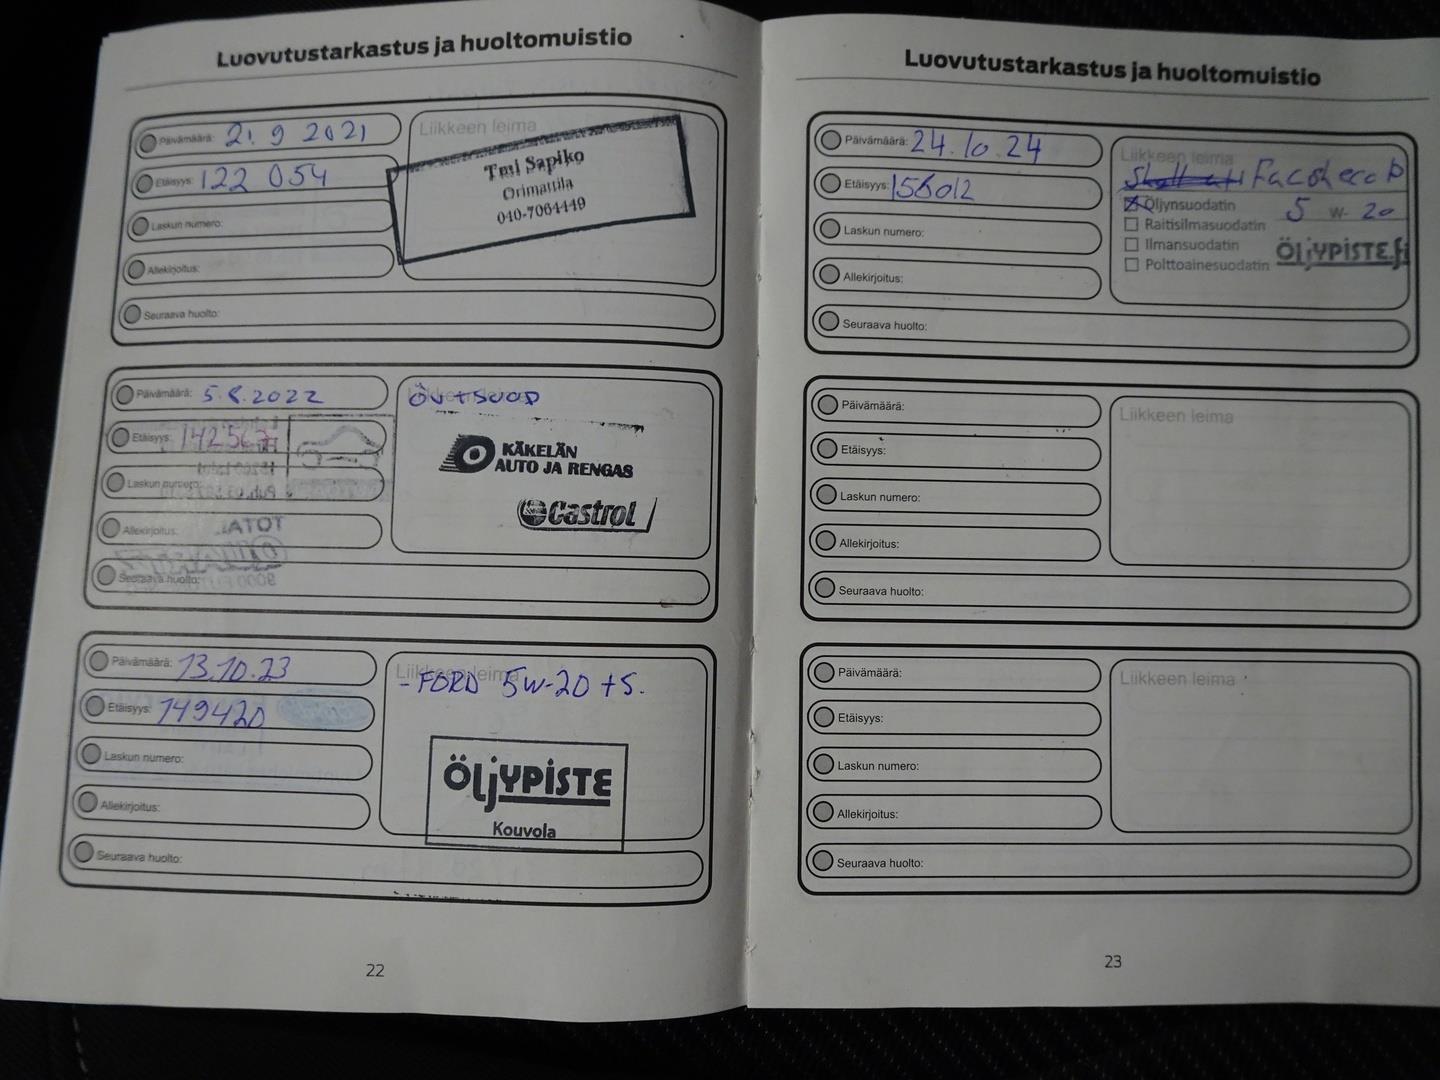 Luovutustarkastus ja huoltomuistio
Päivämäärä: 21.9 2021
Etäisyys: 122 054
Laskun numero:
Allekirjoitus:
Seuraava huolto:
Liikkeen leima
Tmi Sapiko
Orimattila
040-7064449
Päivämäärä: 5.8.2022
Etäisyys: 142567
Laskun numero:
Allekirjoitus:
Seuraava huolto:
KÄKELÄN
AUTO JA RENGAS
Castrol
Päivämäärä: 13.10.23
Etäisyys: 149420
Laskun numero:
Allekirjoitus:
Seuraava huolto:
Liikkeen leima
-FORD 5W-20 +S.
ÖLjYPiSTE
Kouvola
22
Luovutustarkastus ja huoltomuistio
Päivämäärä: 24.10.24
Etäisyys: 158012
Laskun numero:
Allekirjoitus:
Seuraava huolto:
Liikkeen leima
Öljynsuodatin 5 W- 20
Raitisilmasuodatin
Ilmansuodatin
Polttoainesuodatin
ÖLjYPiSTE.fi
Päivämäärä:
Etäisyys:
Laskun numero:
Allekirjoitus:
Seuraava huolto:
Liikkeen leima
Päivämäärä:
Etäisyys:
Laskun numero:
Allekirjoitus:
Seuraava huolto:
Liikkeen leima
23